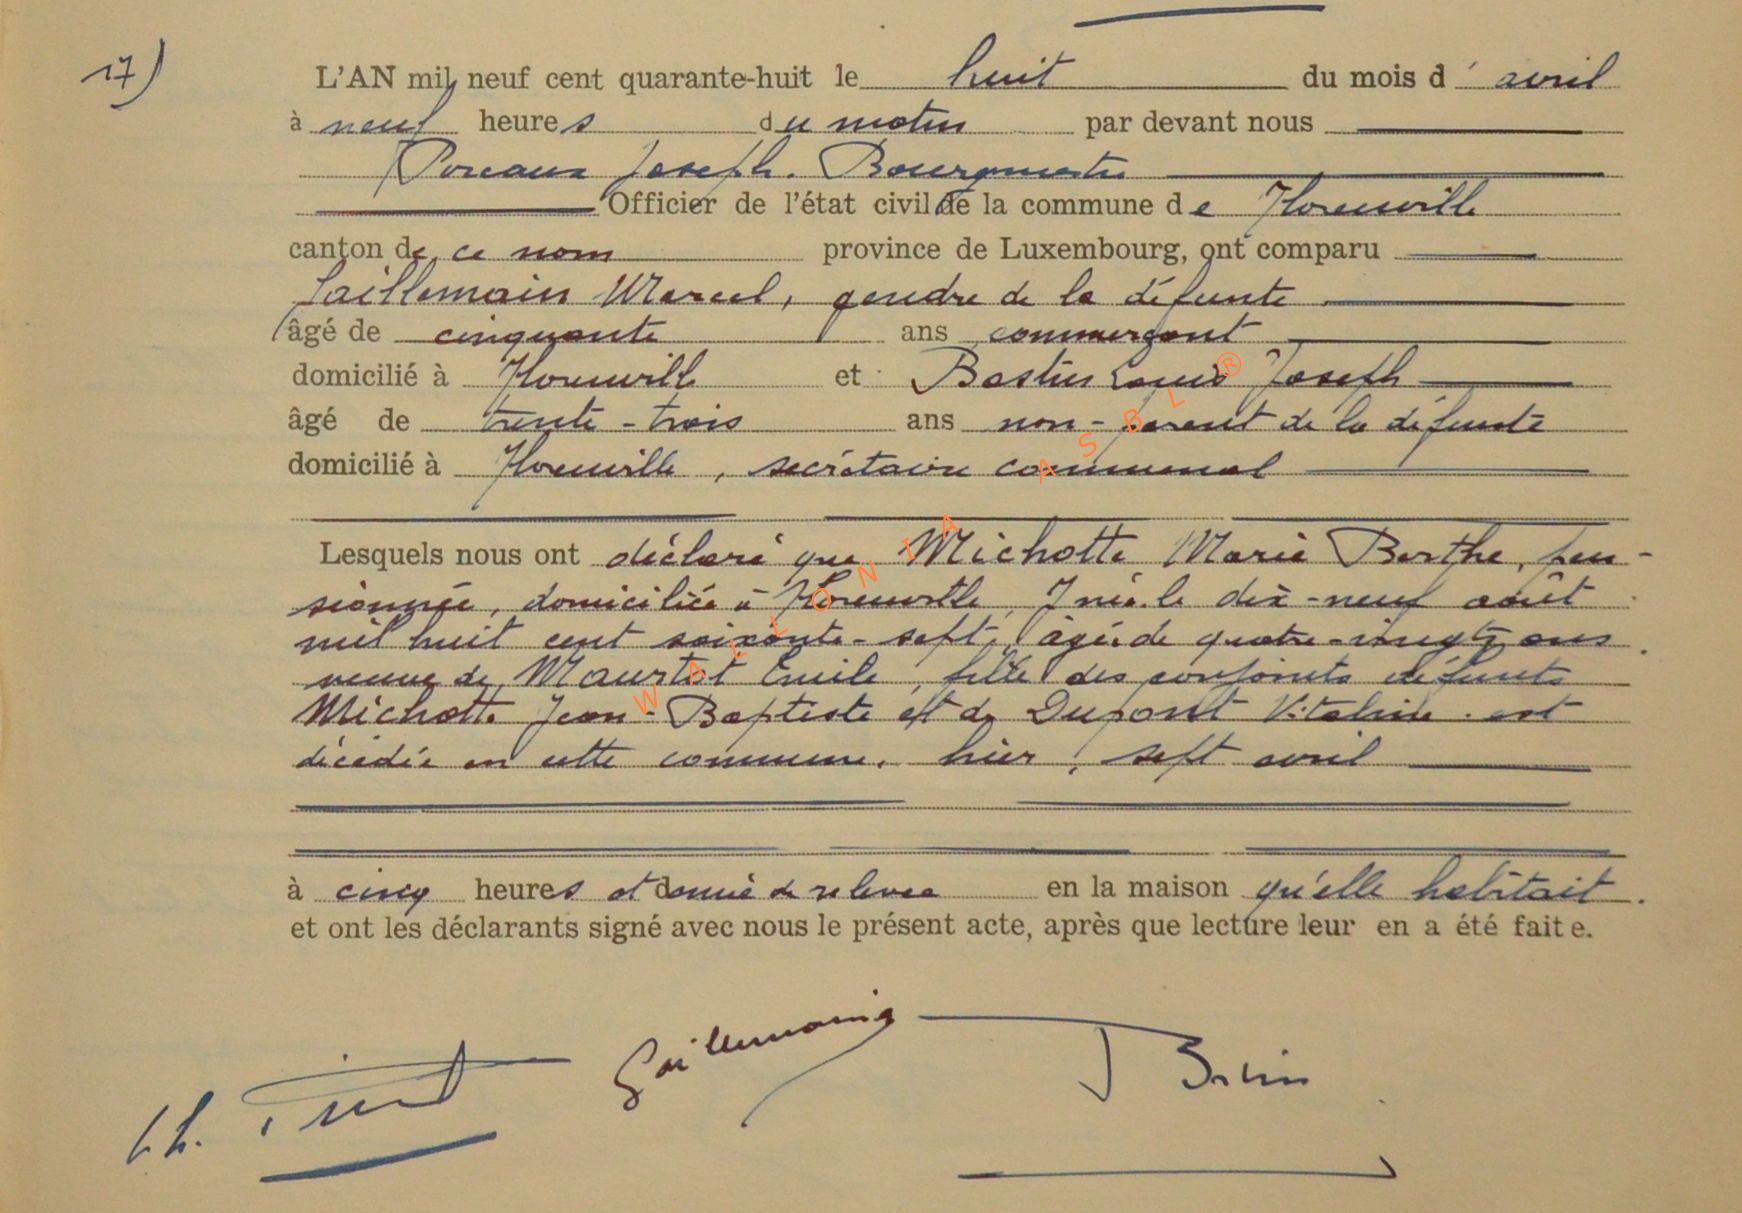 17)
L'AN mil neuf cent quarante-huit le huit du mois d' avril
à neuf heures du matin par devant nous
Poncaux Joseph. Bourgmestre
Officier de l'état civil de la commune de Florenville
canton de ce nom province de Luxembourg, ont comparu
Gaillemain Marcel, gendre de la défunte
âgé de cinquante ans commerçant
domicilié à Florenville et Bastin Louis Joseph
âgé de trente-trois ans non-parent de la défunte
domicilié à Florenville, secrétaire communal
Lesquels nous ont déclaré que Michotte Marie Berthe, pen-
sionnée, domiciliée à Florenville, y née le dix-neuf août
mil huit cent soixante-sept, âgée de quatre-vingts ans
veuve de Maurtot Emile, fille des conjoints défunts
Michotte Jean-Baptiste et de Dupont Vitaline. est
décédée en cette commune, hier, sept avril
à cinq heures et demie de relevée en la maison qu'elle habitait.
et ont les déclarants signé avec nous le présent acte, après que lecture leur en a été faite.
Gaillemain
WALLONIA ASBL ®